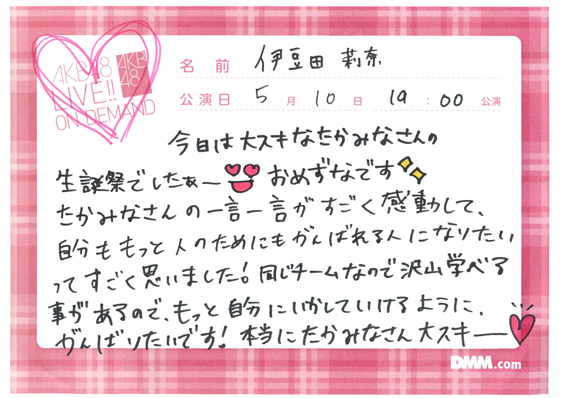 AKB48
LIVE!!
ON DEMAND
AKB
48
名前 伊豆田 莉奈
公演日 5月10日 19:00公演
今日は大スキなたかみなさんの
生誕祭でしたぁー おめずなです
たかみなさんの一言一言がすごく感動して、
自分ももっと人のためにもがんばれる人になりたい
ってすごく思いました!同じチームなので沢山学べる
事があるので、もっと自分にいかしていけるように、
がんばりたいです!本当にたかみなさん大スキー
DMM.com